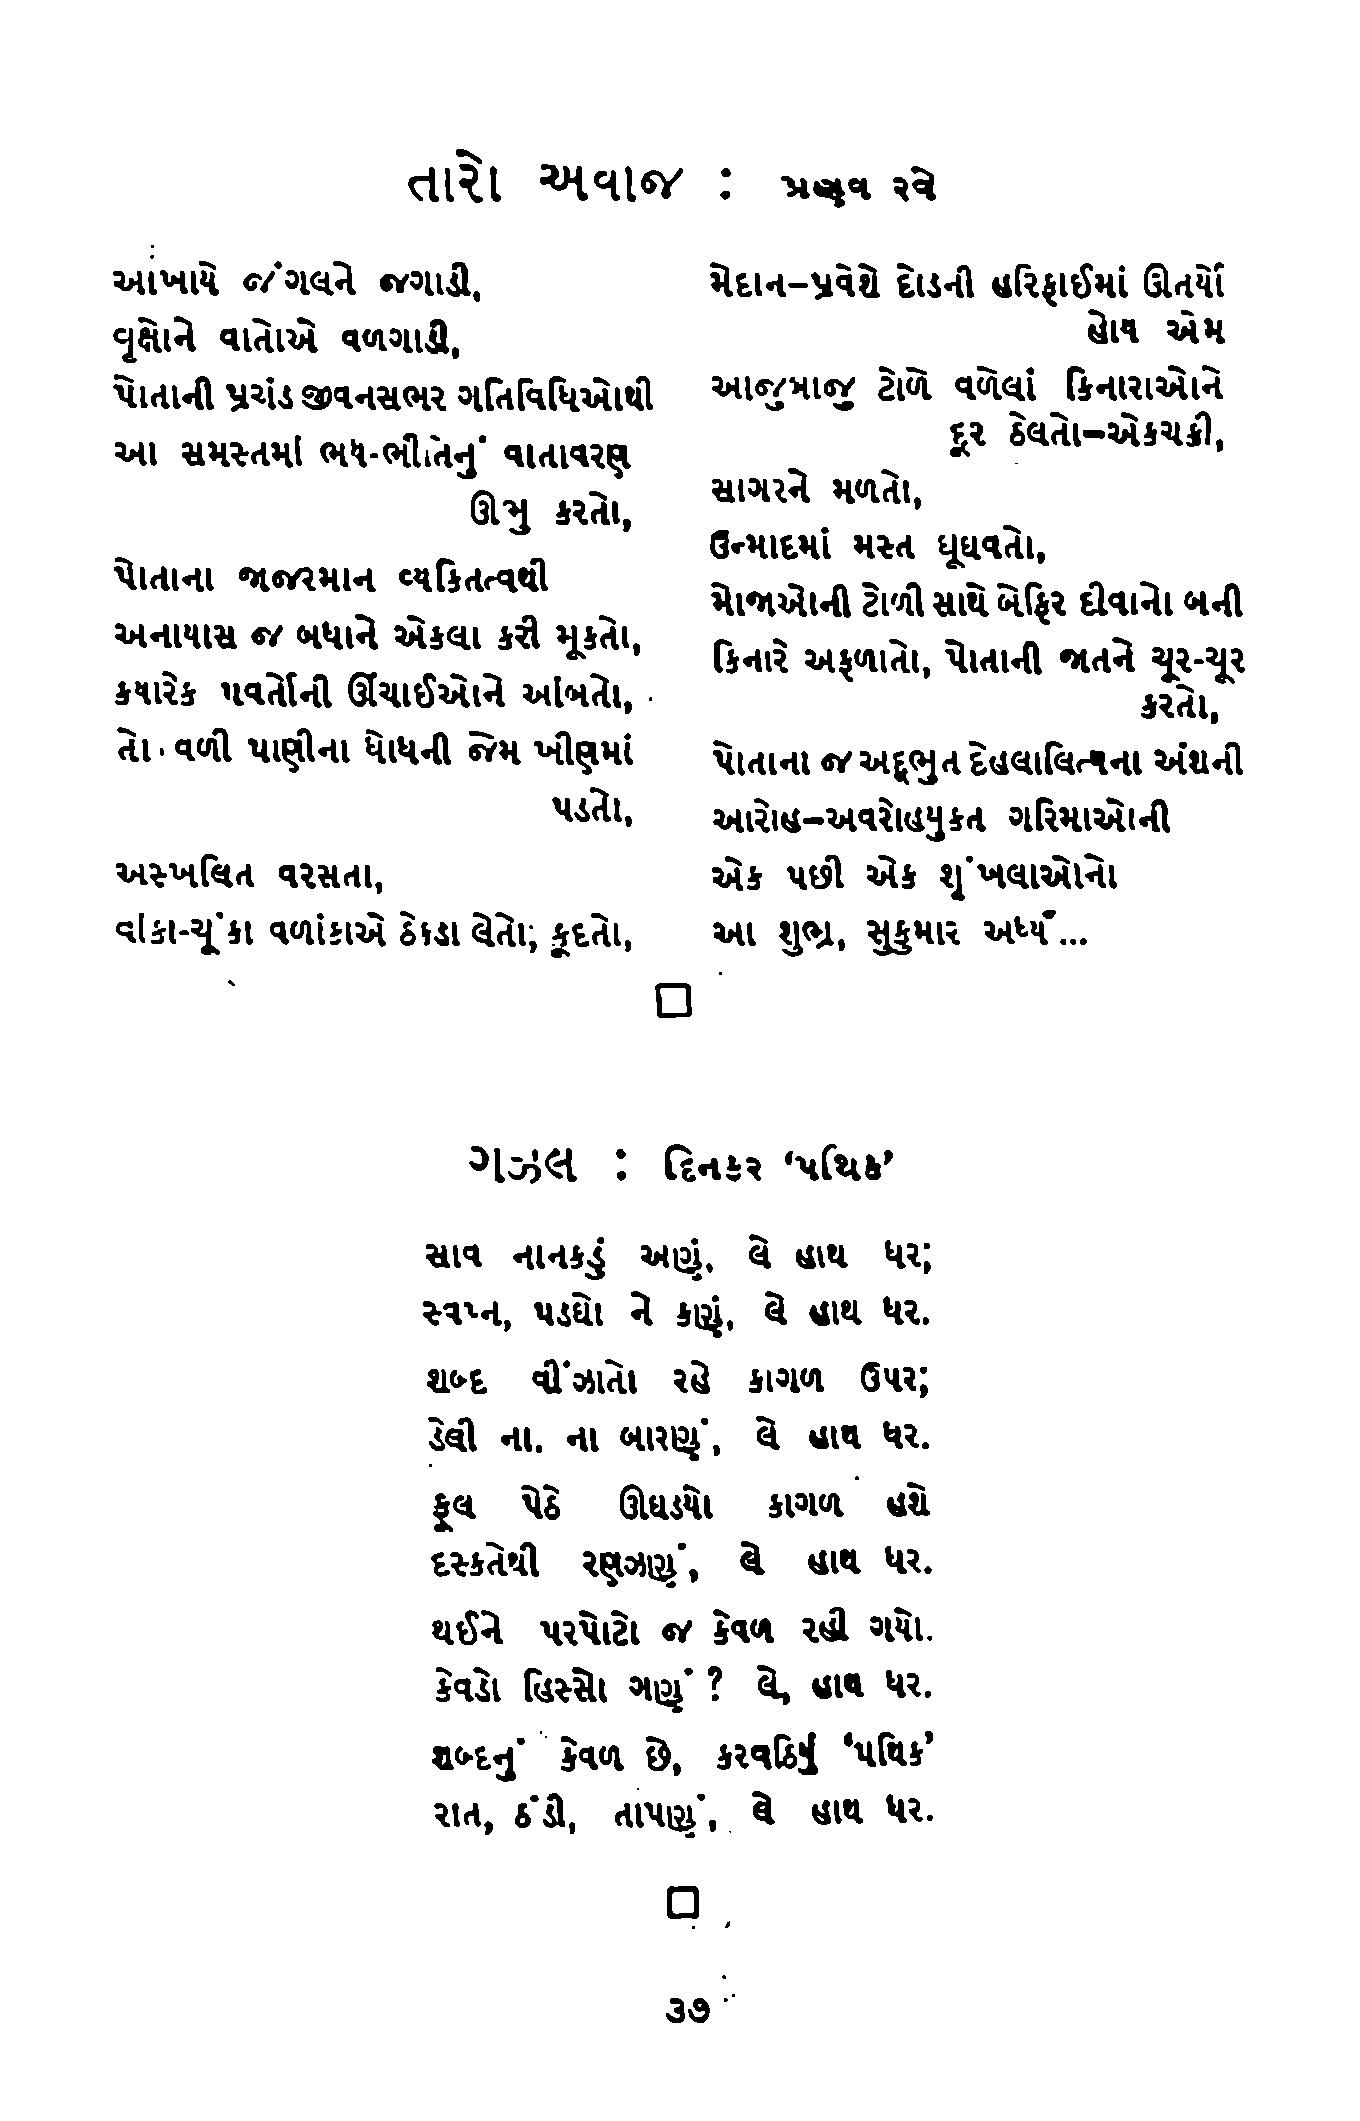 તારો અવાજ : પ્રણવ રવે
આખાયે જંગલને જગાડી,
વૃક્ષોને વાતોએ વળગાડી,
પોતાની પ્રચંડ જીવનસભર ગતિવિધિઓથી
આ સમસ્તમાં ભય-ભીતિનું વાતાવરણ
ઊભુ કરતો,
પોતાના જાજરમાન વ્યકિતત્વથી
અનાયાસ જ બધાને એકલા કરી મૂકતો,
કયારેક પવર્તોની ઊંચાઈઓને આંબતો,
તો વળી પાણીના ધોધની જેમ ખીણમાં
પડતો,
અસ્ખલિત વરસતા,
વાંકા-ચૂંકા વળાંકાએ ઠેકડા લેતો; કૂદતો,
મેદાન–પ્રવેશે દોડની હરિફાઈમાં ઊતર્યો
હોય એમ
આજુબાજુ ટોળે વળેલાં કિનારાઓને
દૂર ઠેલતો–એકચક્રી,
સાગરને મળતો,
ઉન્માદમાં મસ્ત ઘૂઘવતો,
મોજાઓની ટોળી સાથે બેફિર દીવાનો બની
કિનારે અફળાતો, પોતાની જાતને ચૂર-ચૂર
કરતો,
પોતાના જ અદ્ભુત દેહલાલિત્યના અંશની
આરોહ–અવરોહયુકત ગરિમાઓની
એક પછી એક શૃંખલાઓનો
આ શુભ્ર, સુકુમાર અર્ધ્ય...
ગઝલ : દિનકર ‘પથિક’
સાવ નાનકડું અણું, લે હાથ ધર;
સ્વપ્ન, પડઘો ને કણું, લે હાથ ધર.
શબ્દ વીંઝાતો રહે કાગળ ઉપર;
ડેલી ના. ના બારણું, લે હાથ ધર.
ફૂલ પેઠે ઊઘડયો કાગળ હશે
દસ્કતેથી રણઝણું, લે હાથ ધર.
થઈને પરપોટો જ કેવળ રહી ગયો.
કેવડો હિસ્સો ગણું ? લે, હાથ ધર.
શબ્દનું કેવળ છે, કરવઠિયું ‘પથિક’
રાત, ઠંડી, તાપણું, લે હાથ ધર.
૩૭